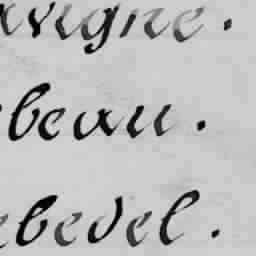 xvigne.
beau.
ebedel.